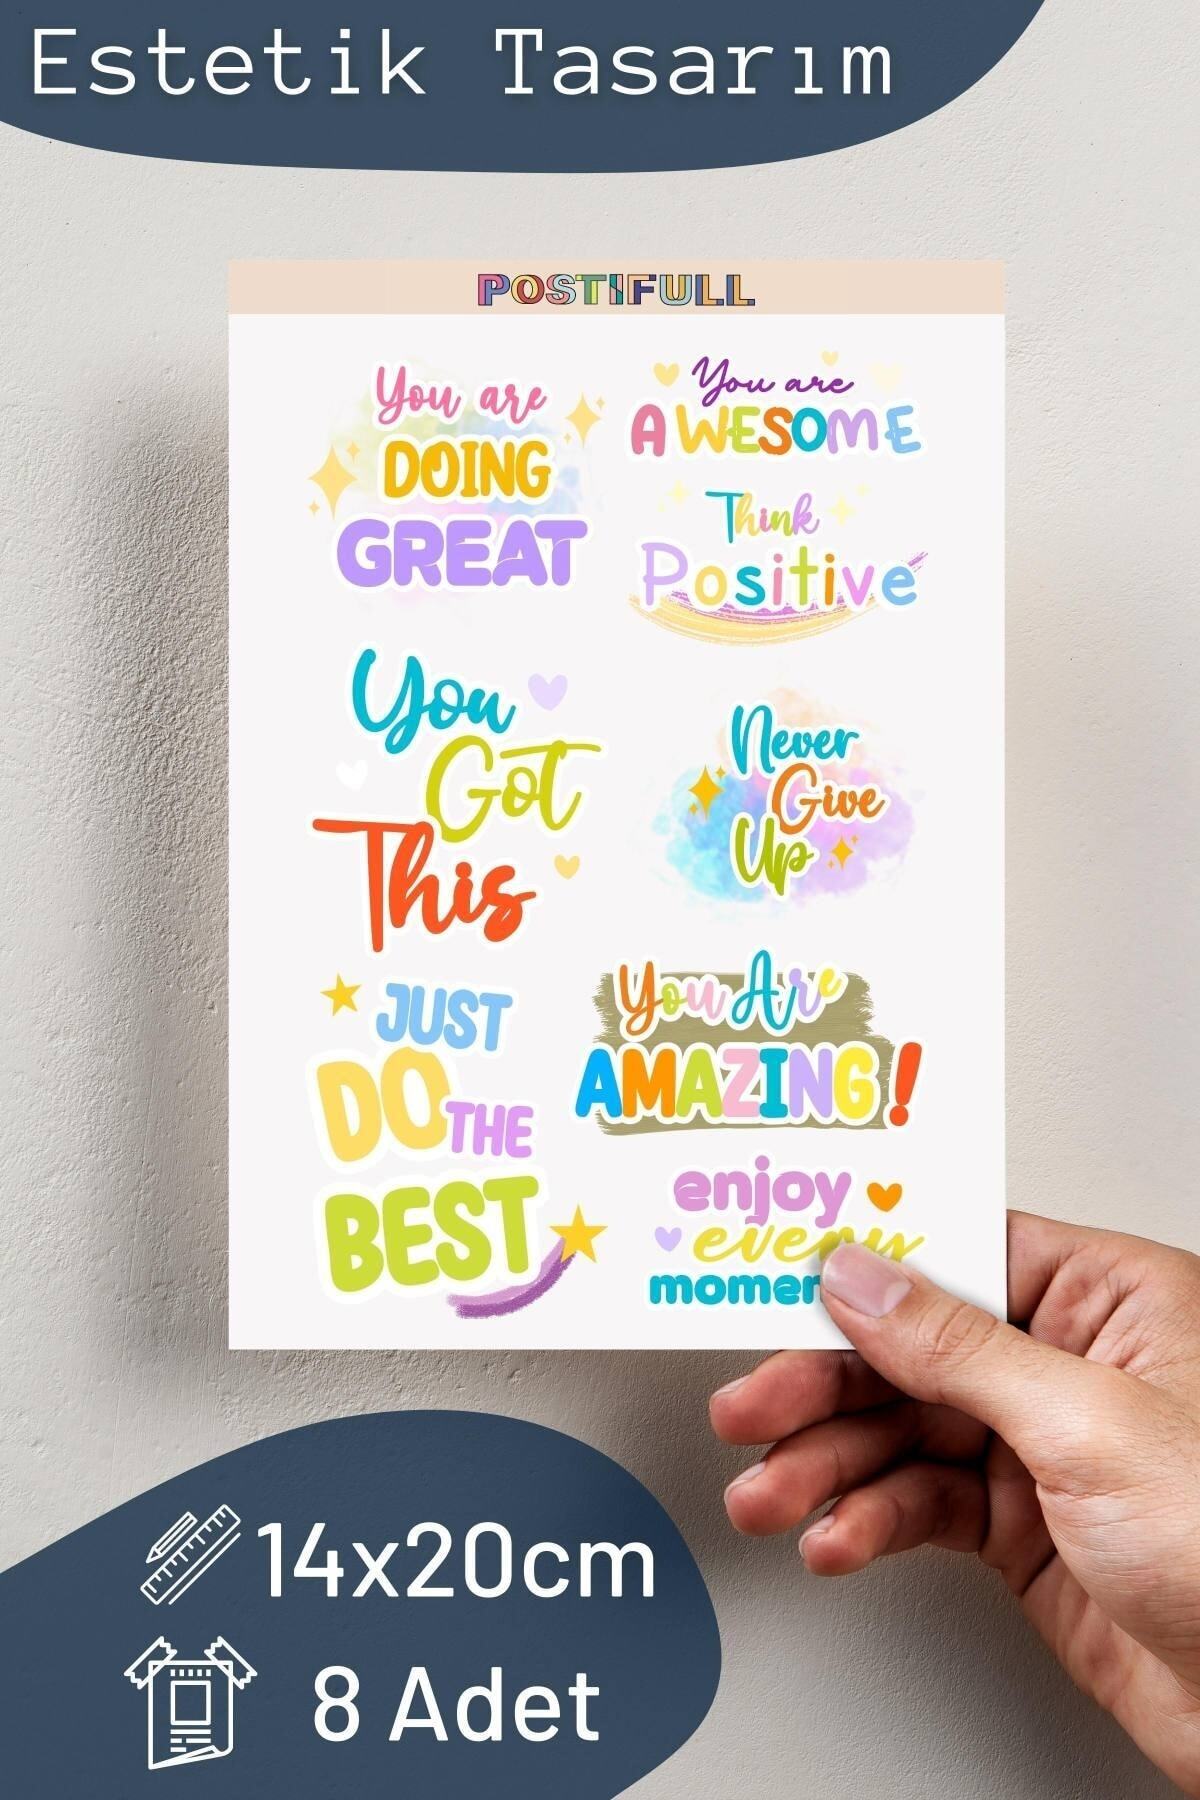 Estetik Tasarım
POSTIFULL
You are
DOING
GREAT
You are
AWESOME
Think
Positive
You
Got
This
Never
Give
Up
JUST
DO THE
BEST
You Are
AMAZING!
enjoy
every
momen
14x20cm
8 Adet